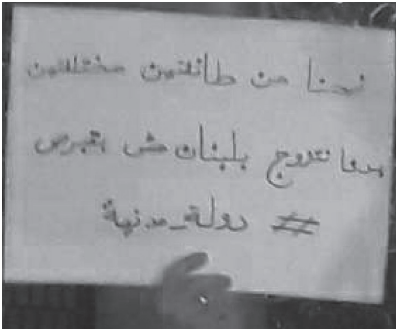 نحنا من طائفتين مختلفتين
بدنا نتزوج بلبنان مش بقبرص
# دولة_مدنية